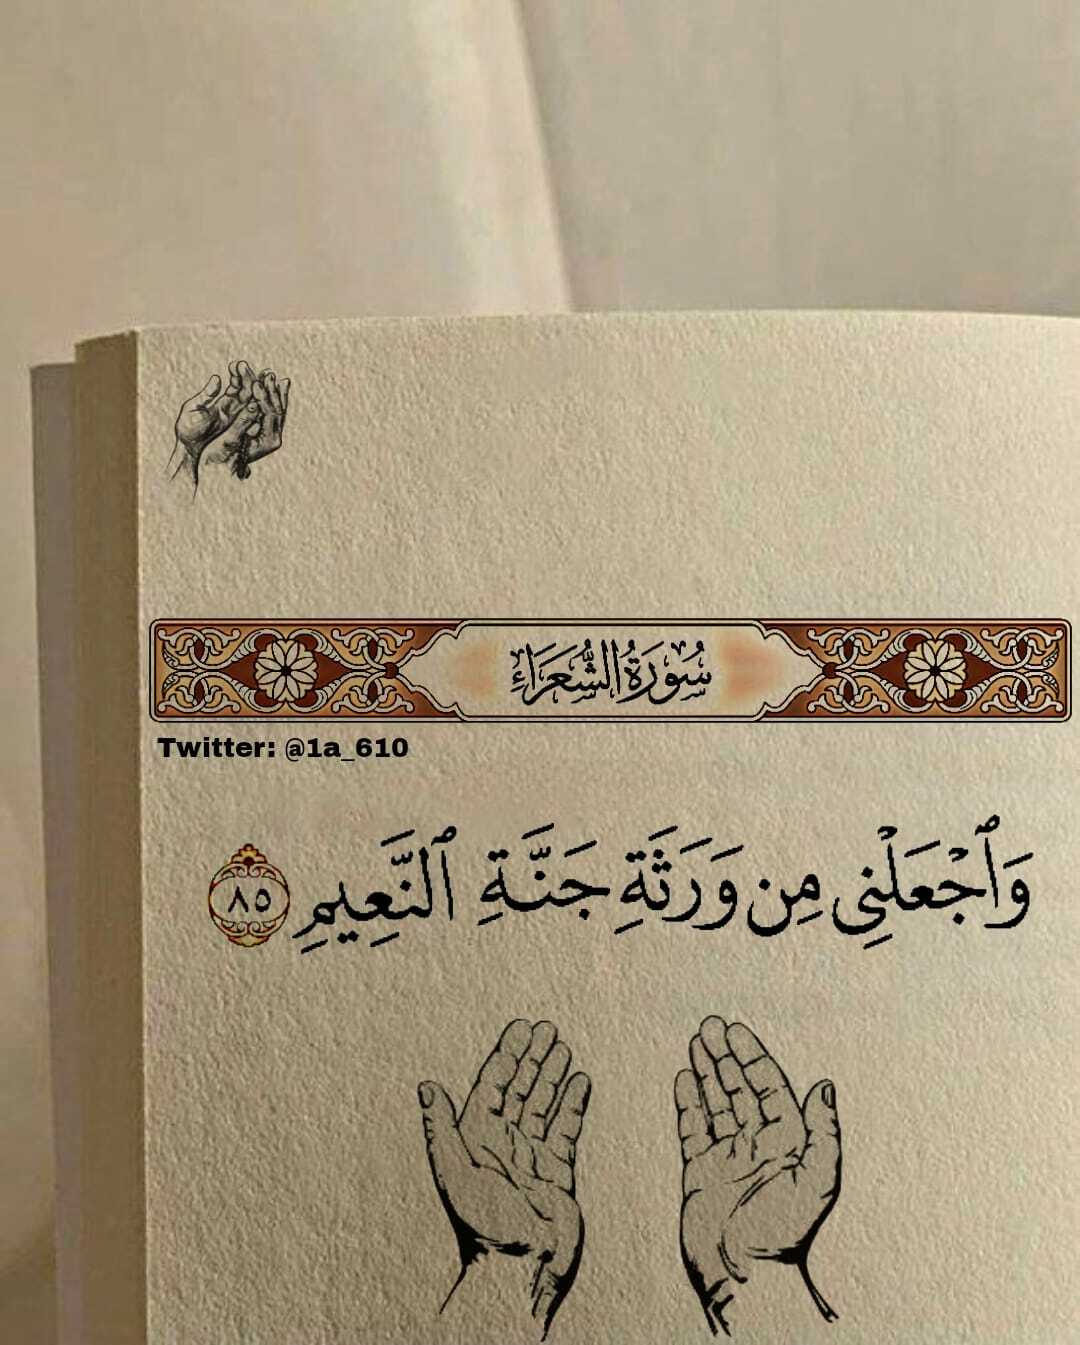 سُورَةُ الشُّعَرَاءِ
Twitter: @1a_610
وَٱجْعَلْنِى مِن وَرَثَةِ جَنَّةِ ٱلنَّعِيمِ ٨٥